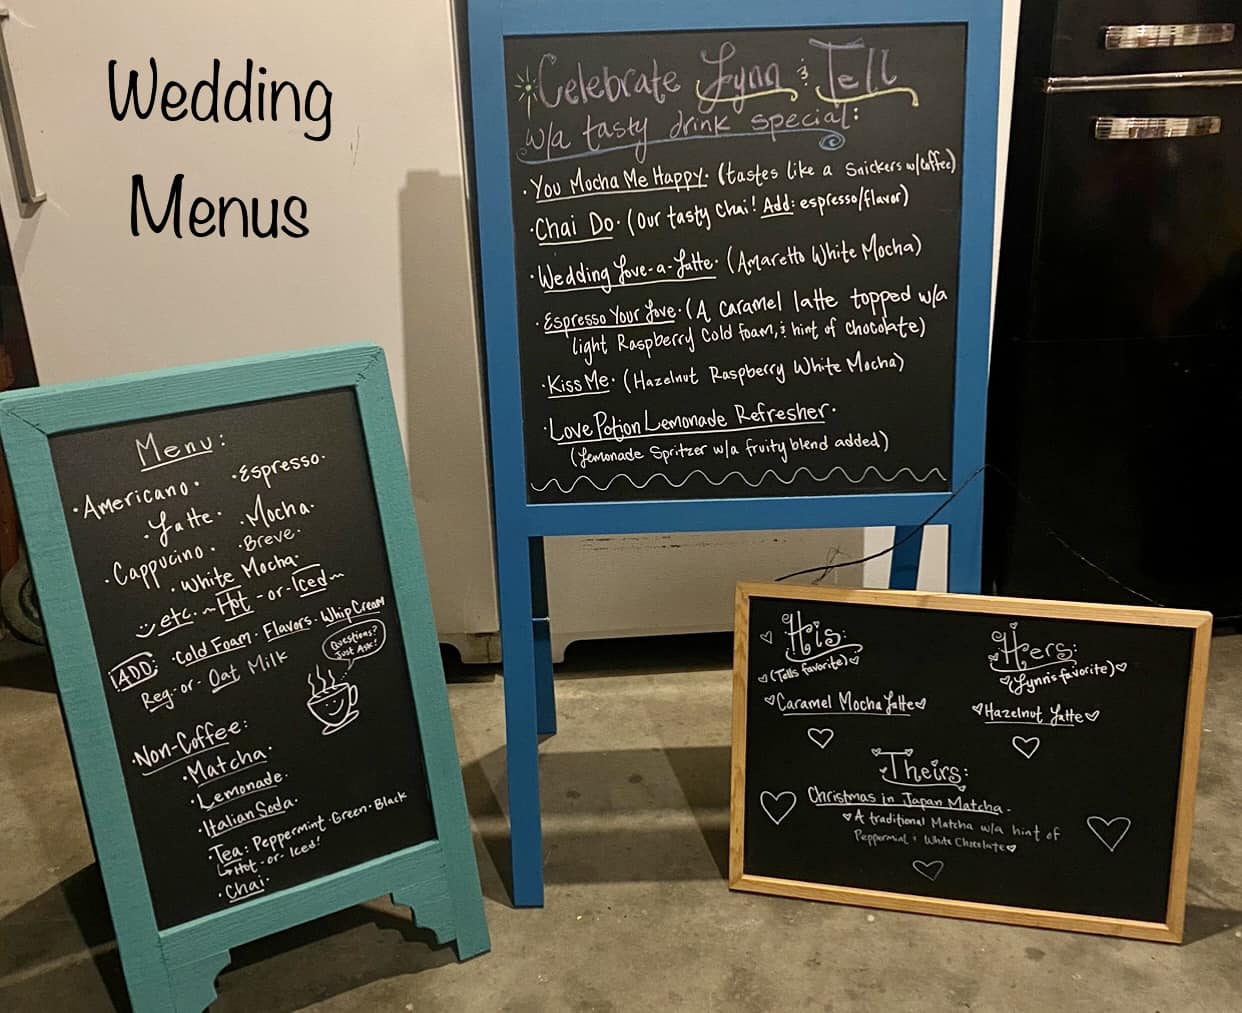 Wedding
Menus
Celebrate Lynn & Tell
w/a tasty drink special:
· You Mocha Me Happy · (tastes like a Snickers w/Coffee)
· Chai Do · (Our tasty Chai! Add: espresso/flavor)
· Wedding Love-a-Latte · (Amaretto White Mocha)
· Espresso Your Love · (A caramel latte topped w/a
light Raspberry Cold foam, & hint of chocolate)
· Kiss Me · (Hazelnut Raspberry White Mocha)
· Love Potion Lemonade Refresher ·
(Lemonade Spritzer w/a fruity blend added)
Menu:
· Americano · · Espresso ·
· Latte · · Mocha ·
· Cappucino · · Breve ·
· White Mocha ·
etc. ~ Hot - or - Iced ~
ADD: · Cold Foam · Flavors · Whip Cream
Reg · or · Oat Milk
Questions?
Just Ask!
· Non-Coffee:
· Matcha ·
· Lemonade ·
· Italian Soda ·
· Tea: Peppermint · Green · Black
Hot · or · Iced!
· Chai ·
His:
(Tell's favorite)
Caramel Mocha Latte
Hers:
(Lynn's favorite)
Hazelnut Latte
Theirs:
Christmas in Japan Matcha -
A traditional Matcha w/a hint of
Peppermint & White Chocolate